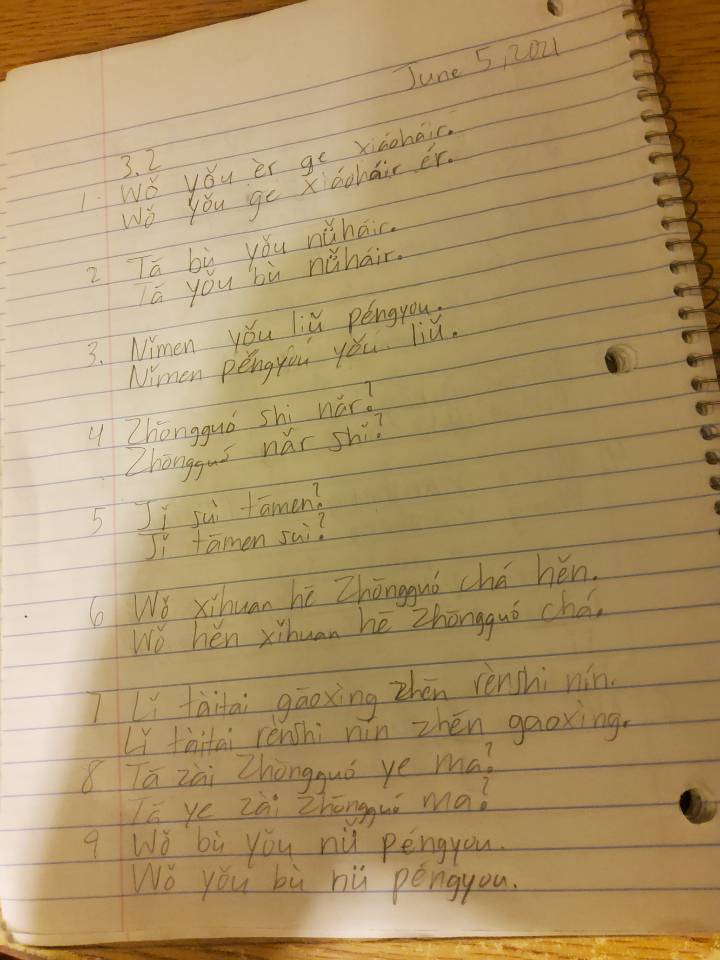 June 5, 2021
3.2
1. Wǒ yǒu èr ge xiáoháir.
Wǒ yǒu ge xiáoháir èr.
2 Tā bù yǒu nǚháir.
Tā yǒu bù nǚháir.
3. Nǐmen yǒu liǔ péngyou.
Nǐmen péngyou yǒu liǔ.
4 Zhōngguó shi nǎr?
Zhōngguó nǎr shi?
5 Jǐ suì tāmen?
Jǐ tāmen suì?
6 Wǒ xǐhuan hē Zhōngguó chá hěn.
Wǒ hěn xǐhuan hē Zhōngguó chá.
7 Lǐ tàitai gāoxìng zhēn rènshi nín.
Lǐ tàitai rènshi nín zhēn gaoxìng.
8 Tā zài Zhōngguó ye ma?
Tā ye zài Zhōngguó ma?
9 Wǒ bù yǒu nǚ péngyou.
Wǒ yǒu bù nǚ péngyou.